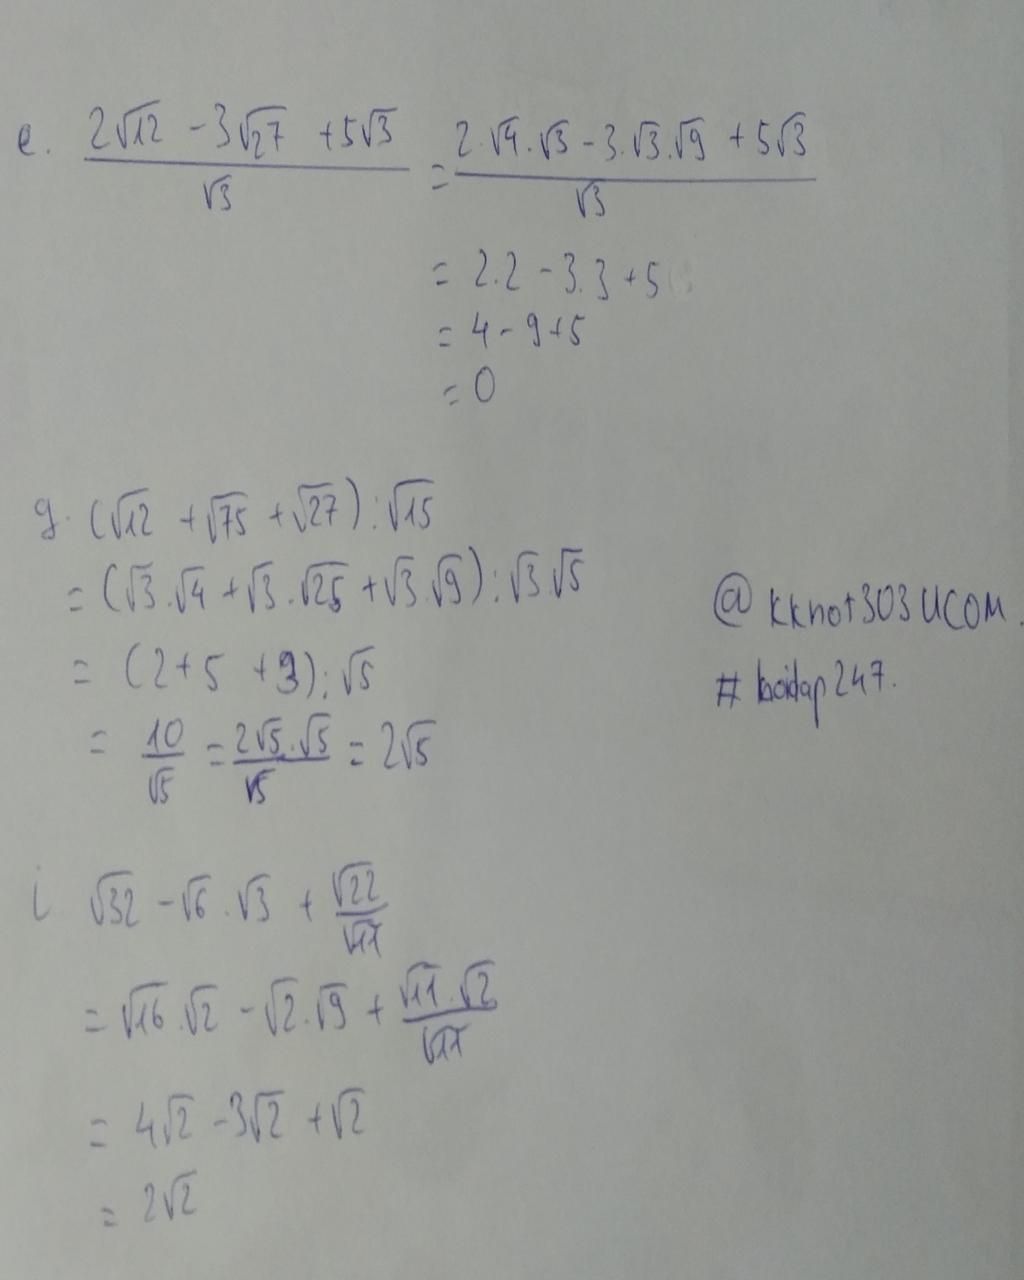 e. (2√12 - 3√27 + 5√3)/√3 = (2.√4.√3 - 3.√3.√9 + 5√3)/√3
= 2.2 - 3.3 + 5
= 4 - 9 + 5
= 0
g. (√12 + √75 + √27) : √15
= (√3.√4 + √3.√25 + √3.√9) : √3.√5
= (2 + 5 + 3) : √5
= 10/√5 = (2√5.√5)/√5 = 2√5
@kknot303UCOM.
# baitap247.
i √32 - √6.√3 + √22/√11
= √16.√2 - √2.√9 + (√11.√2)/√11
= 4√2 - 3√2 + √2
= 2√2